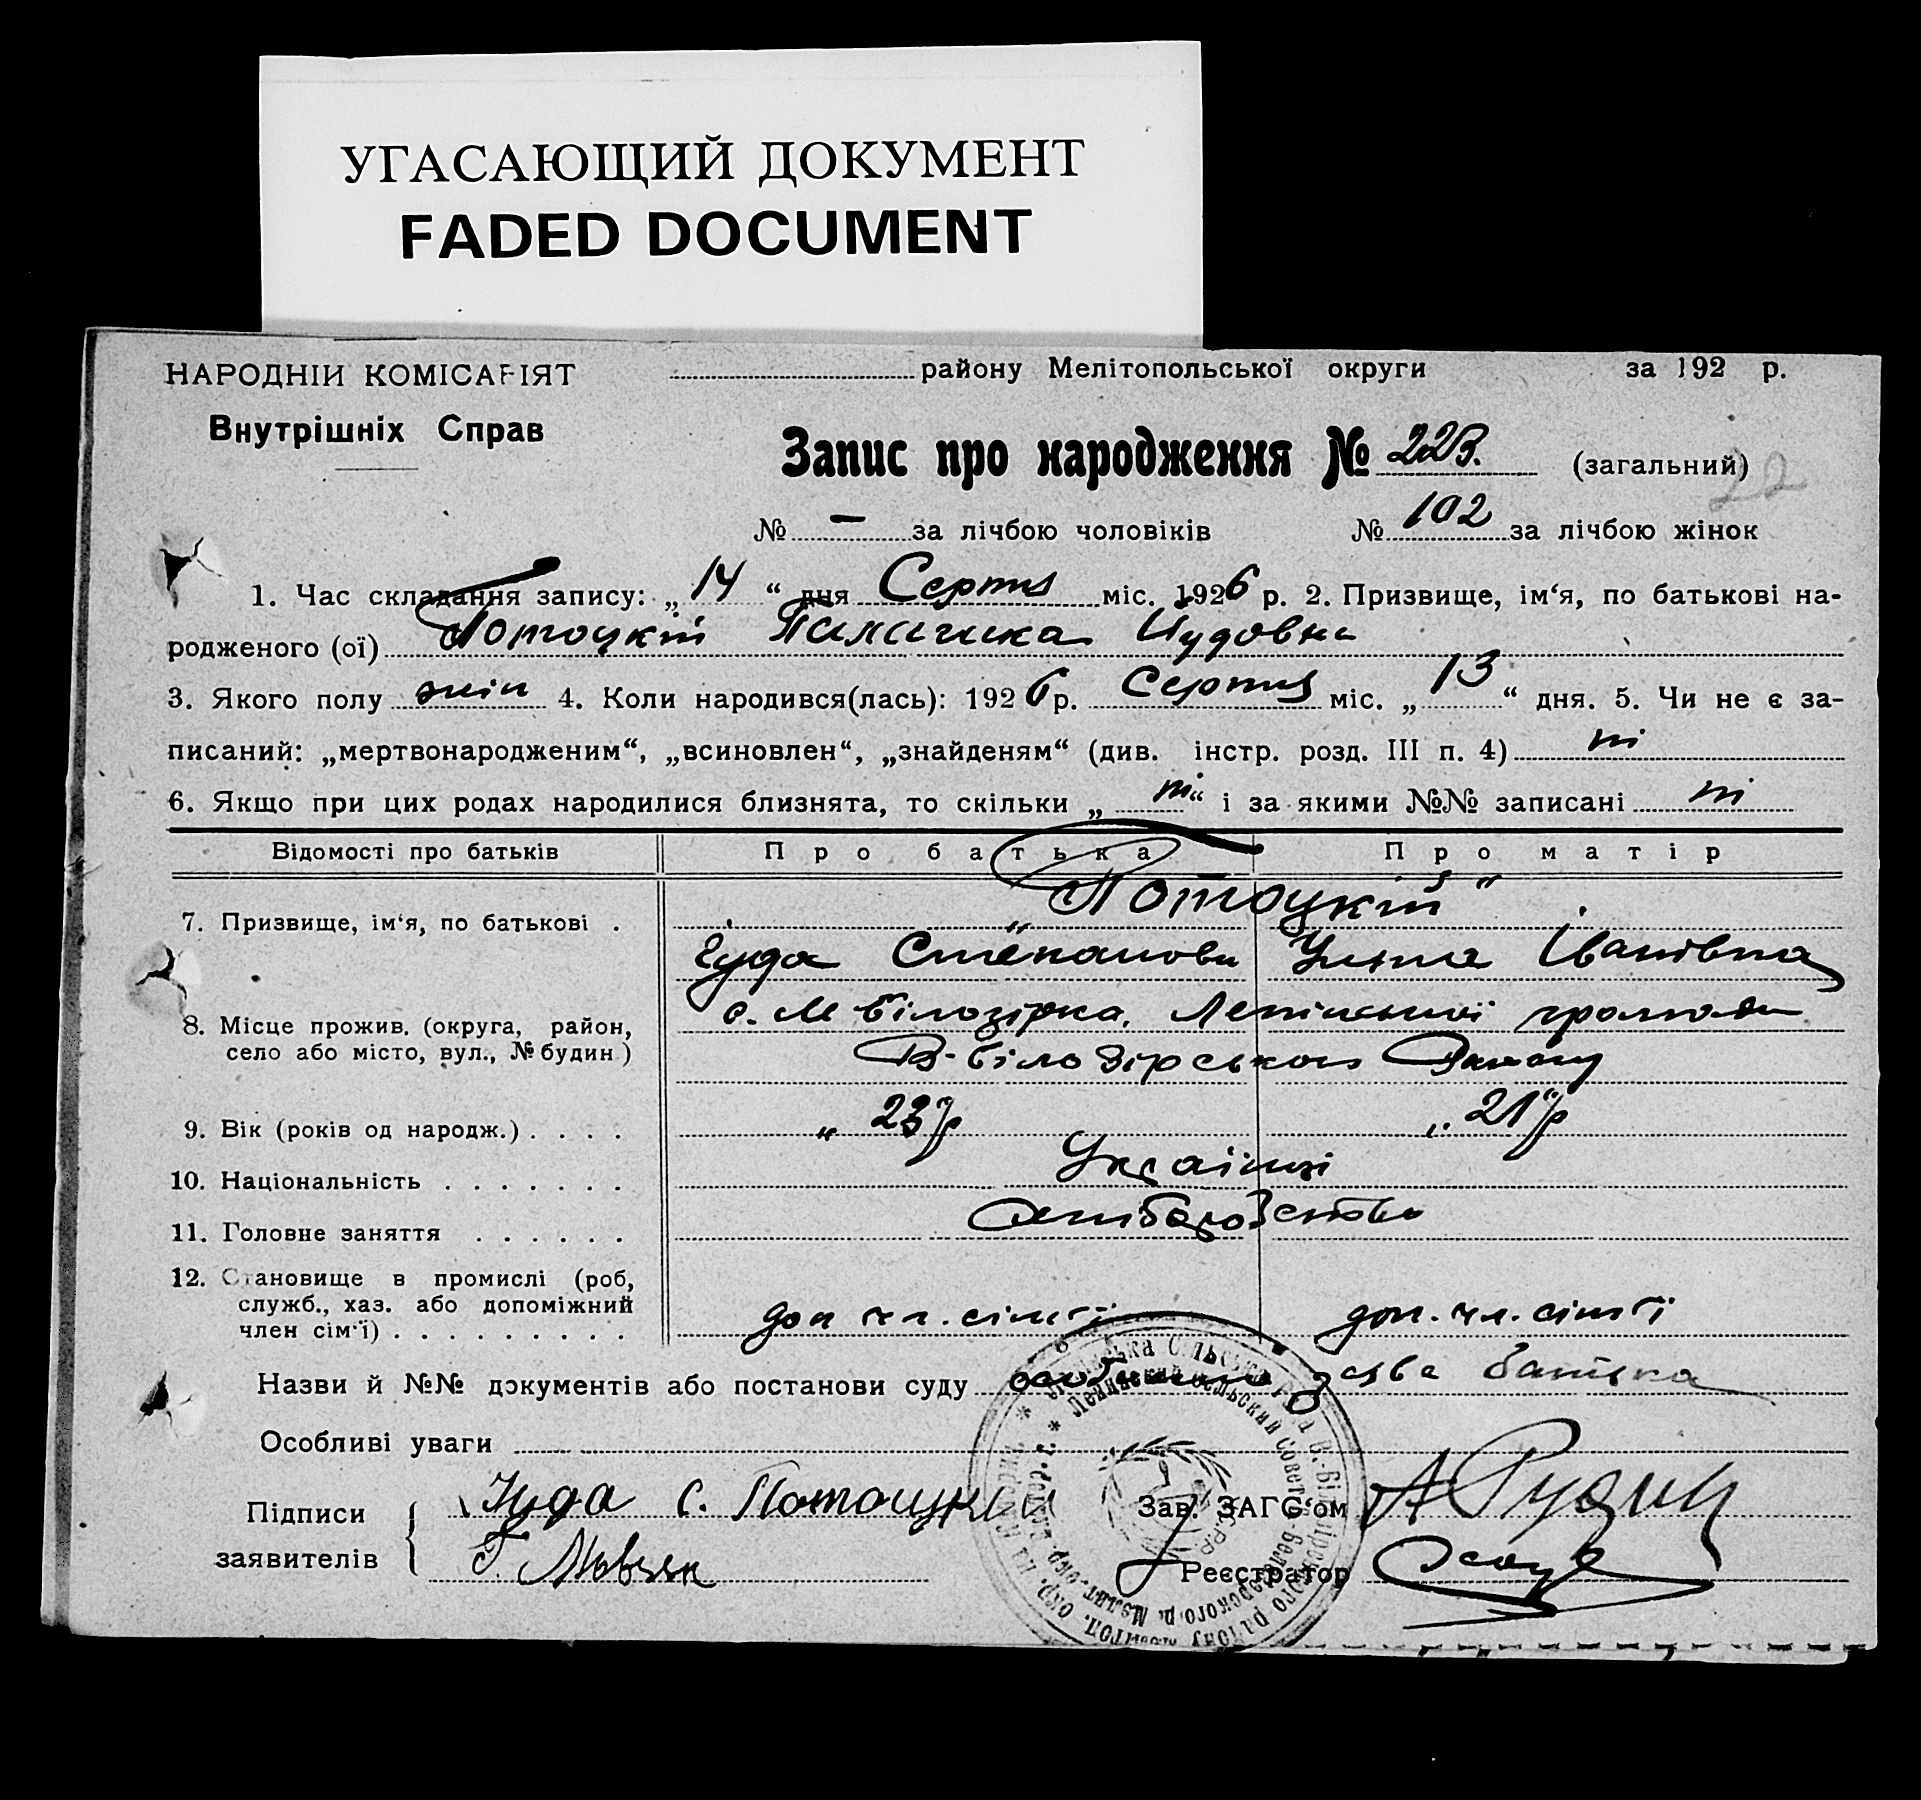 УГАСАЮЩИЙ ДОКУМЕНТ
FADED DOCUMENT
НАРОДНІЙ КОМІСАРІЯТ
Внутрішніх Справ
району Мелітопольської округи за 192 р.
Запис про народження № 223. (загальний)
22
№ — за лічбою чоловіків № 102 за лічбою жінок
1. Час складання запису: „ 14 “ дня Серпня міс. 1926 р. 2. Призвище, ім‘я, по батькові на-
родженого (ої) Потоцкій Йудовна
3. Якого полу жін 4. Коли народився(лась): 1926 р. Серпня міс. „ 13 “ дня. 5. Чи не є за-
писаний: „мертвонародженим“, „всиновлен“, „знайденям“ (див. інстр. розд. III п. 4) ні
6. Якщо при цих родах народилися близнята, то скільки „ ні “ і за якими №№ записані ні
Відомості про батьків Про батька Про матір
7. Призвище, ім‘я, по батькові . „Потоцкій“
Іуда Степанови Уляна Іванівна
8. Місце прожив. (округа, район,
село або місто, вул., № будин)
с. М Білозірка, Ленінської громади
В-Білозірського Району
9. Вік (років од народж.) . . . . „ 23 р „ 21 р
10. Національність . . . . . . . Українці
11. Головне заняття . . . . . . Хліборобство
12. Становище в промислі (роб,
служб., хаз. або допоміжний
член сім‘ї) . . . . . . . . . доп чл. сімʼї доп. чл. сімʼї
Назви й №№ документів або постанови суду особиста заява батька
Особливі уваги
Підписи
заявителів
Іуда С. Потоцкій
Зав. ЗАГС‘ом
Реєстратор